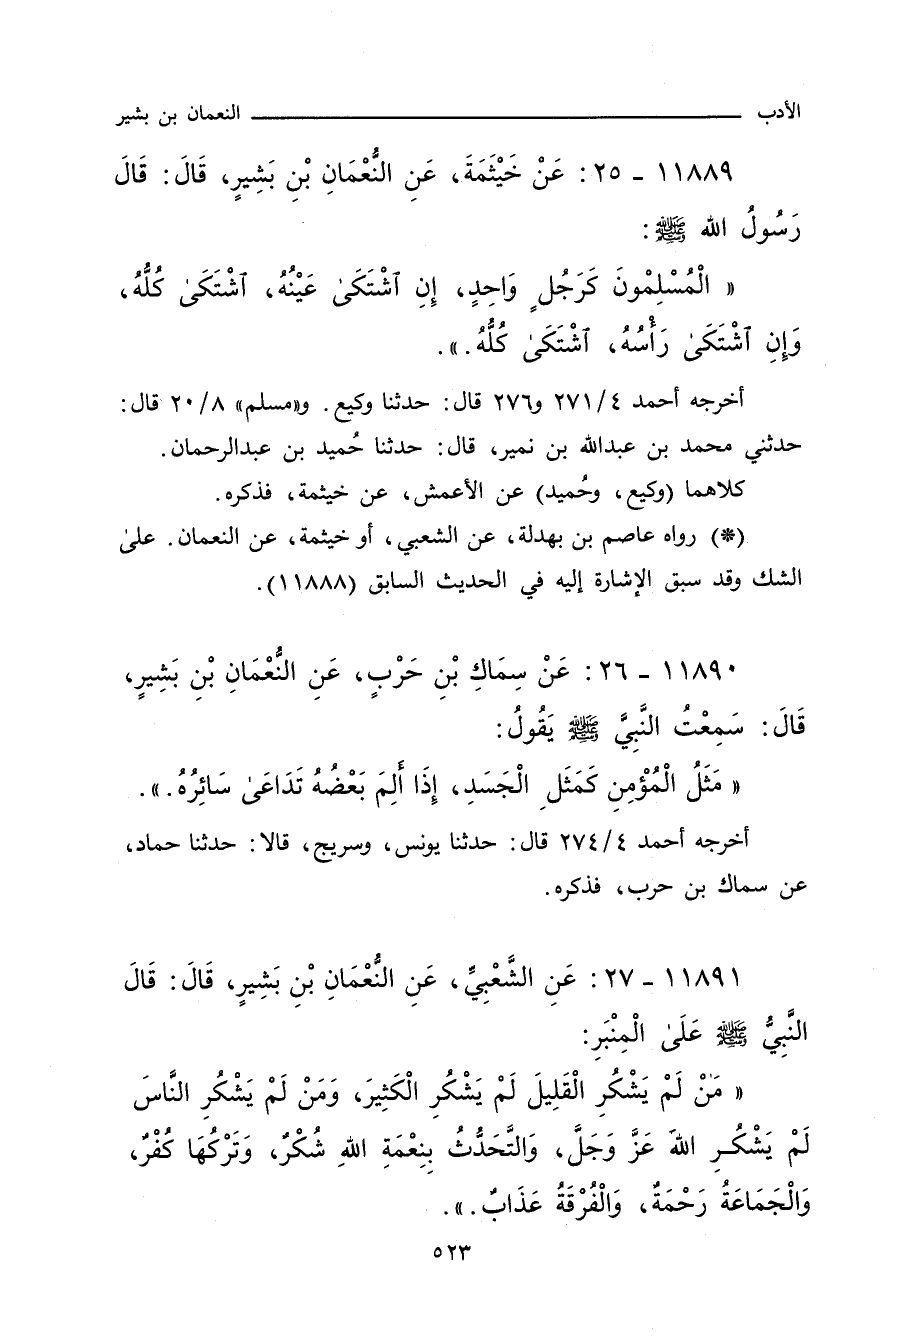 الأدب ــــــــــــــــ النعمان بن بشير
١١٨٨٩ - ٢٥ : عَنْ خَيْثَمَةَ، عَنِ النُّعْمَانِ بْنِ بَشِيرٍ، قَالَ: قَالَ
رَسُولُ الله ﷺ:
« الْمُسْلِمُونَ كَرَجُلٍ وَاحِدٍ، إِنِ ٱشْتَكَىٰ عَيْنُهُ، ٱشْتَكَىٰ كُلُّهُ،
وَإِنِ ٱشْتَكَىٰ رَأْسُهُ، ٱشْتَكَىٰ كُلُّهُ.».
أخرجه أحمد ٢٧١/٤ و٢٧٦ قال: حدثنا وكيع. و«مسلم» ٢٠/٨ قال:
حدثني محمد بن عبدالله بن نمير، قال: حدثنا حُميد بن عبدالرحمان.
كلاهما (وكيع، وحُميد) عن الأعمش، عن خيثمة، فذكره.
(*) رواه عاصم بن بهدلة، عن الشعبي، أو خيثمة، عن النعمان. علىٰ
الشك وقد سبق الإشارة إليه في الحديث السابق (١١٨٨٨).
١١٨٩٠ - ٢٦ : عَنْ سِمَاكِ بْنِ حَرْبٍ، عَنِ النُّعْمَانِ بْنِ بَشِيرٍ،
قَالَ: سَمِعْتُ النَّبِيَّ ﷺ يَقُولُ:
« مَثَلُ الْمُؤْمِنِ كَمَثَلِ الْجَسَدِ، إِذَا أَلِمَ بَعْضُهُ تَدَاعَىٰ سَائِرُهُ.».
أخرجه أحمد ٢٧٤/٤ قال: حدثنا يونس، وسريج، قالا: حدثنا حماد،
عن سماك بن حرب، فذكره.
١١٨٩١ - ٢٧ : عَنِ الشَّعْبِيِّ، عَنِ النُّعْمَانِ بْنِ بَشِيرٍ، قَالَ: قَالَ
النَّبِيُّ ﷺ عَلَىٰ الْمِنْبَرِ:
« مَنْ لَمْ يَشْكُرِ الْقَلِيلَ لَمْ يَشْكُرِ الْكَثِيرَ، وَمَنْ لَمْ يَشْكُرِ النَّاسَ
لَمْ يَشْكُرِ اللهَ عَزَّ وَجَلَّ، وَالتَّحَدُّثُ بِنِعْمَةِ اللهِ شُكْرٌ، وَتَرْكُهَا كُفْرٌ،
وَالْجَمَاعَةُ رَحْمَةٌ، وَالْفُرْقَةُ عَذَابٌ.».
٥٢٣